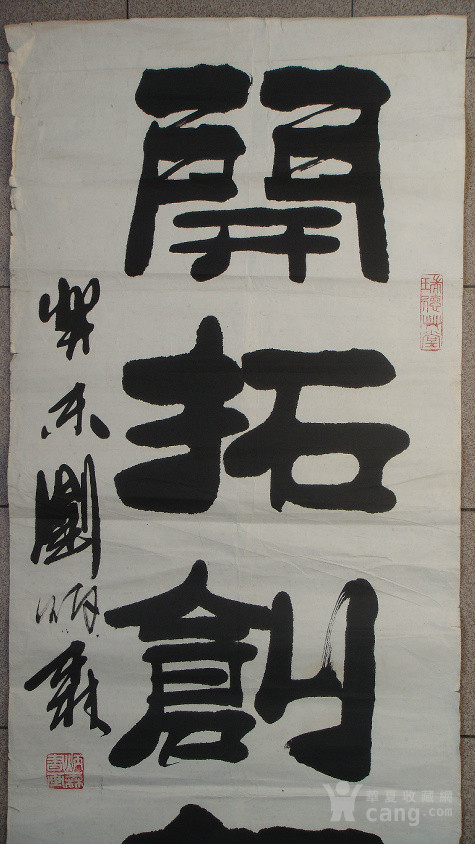 開拓創
癸未劉炳森
華夏收藏網
cang.com